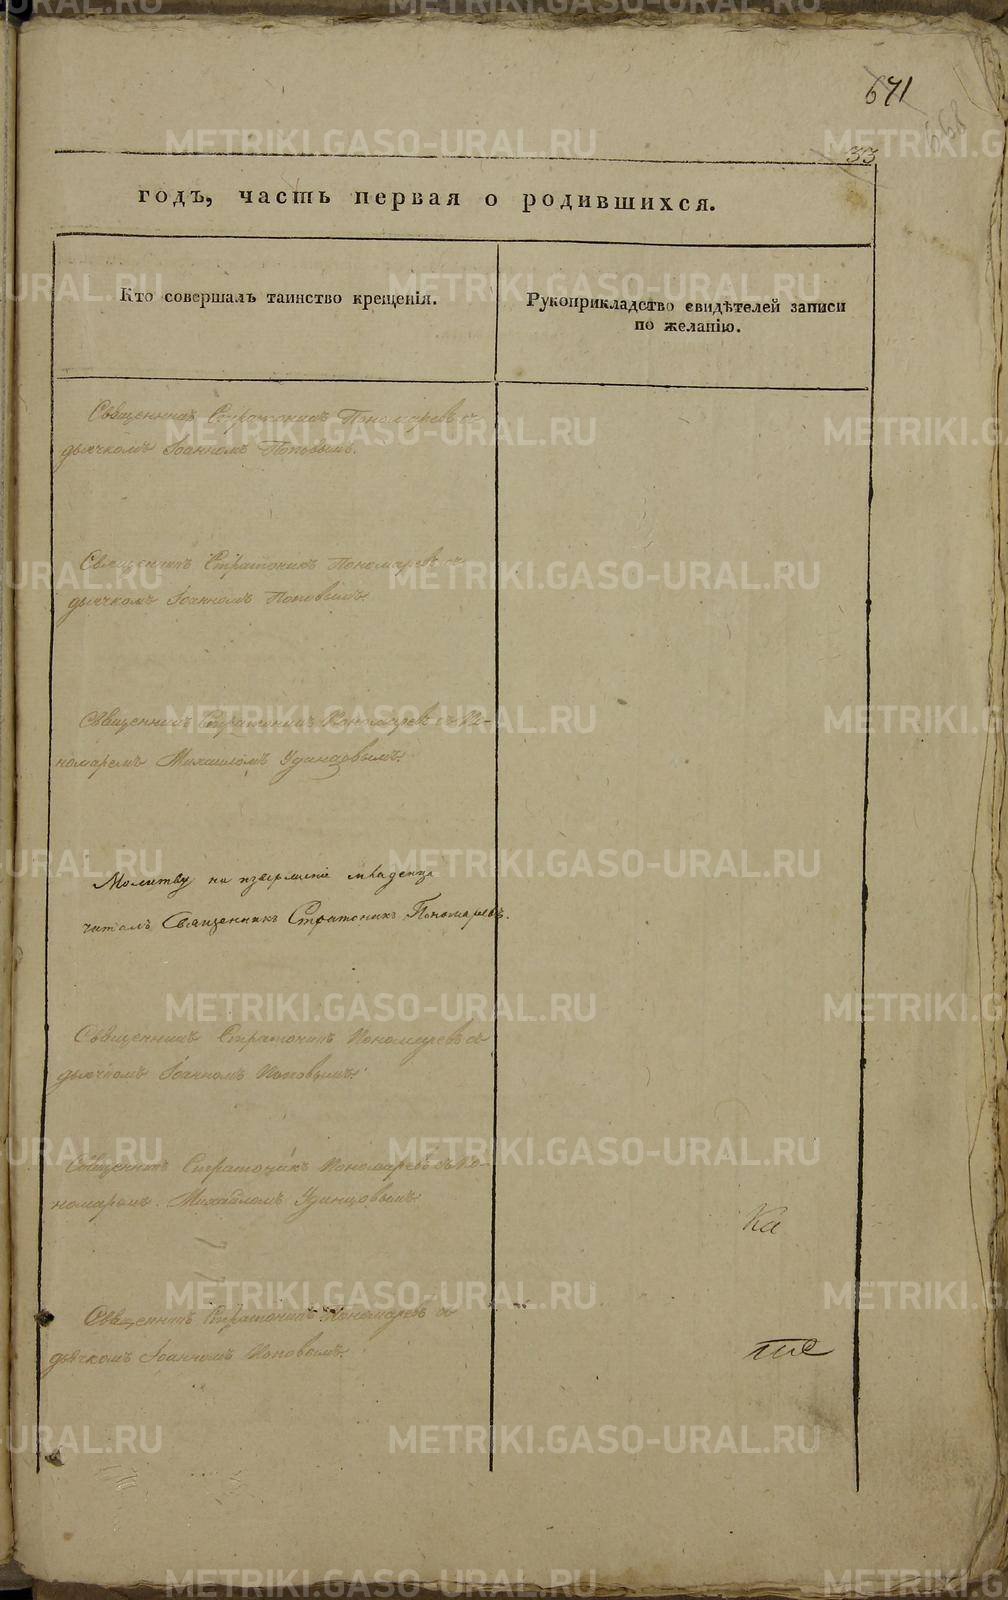 671
668
33
годъ, часть первая о родившихся.
Кто совершалъ таинство крещенія.
Рукоприкладство свидѣтелей записи
по желанію.
Священникъ Стратоникъ Пономаревъ съ
дьячкомъ Іоанномъ Поповымъ.
Священникъ Стратоникъ Пономаревъ съ
дьячкомъ Іоанномъ Поповымъ.
Священникъ Стратоникъ Пономаревъ съ По-
номаремъ Михаиломъ Удинцовымъ.
Молитву на изверженіе младенца
читалъ Священникъ Стратоникъ Пономаревъ.
Священникъ Стратоникъ Пономаревъ съ
дьячкомъ Іоанномъ Поповымъ.
Священникъ Стратоникъ Пономаревъ съ По-
номаремъ Михаиломъ Удинцовымъ.
Ка
Священникъ Стратоникъ Пономаревъ съ
дьячкомъ Іоанномъ Поповымъ.
METRIKI.GASO-URAL.RU